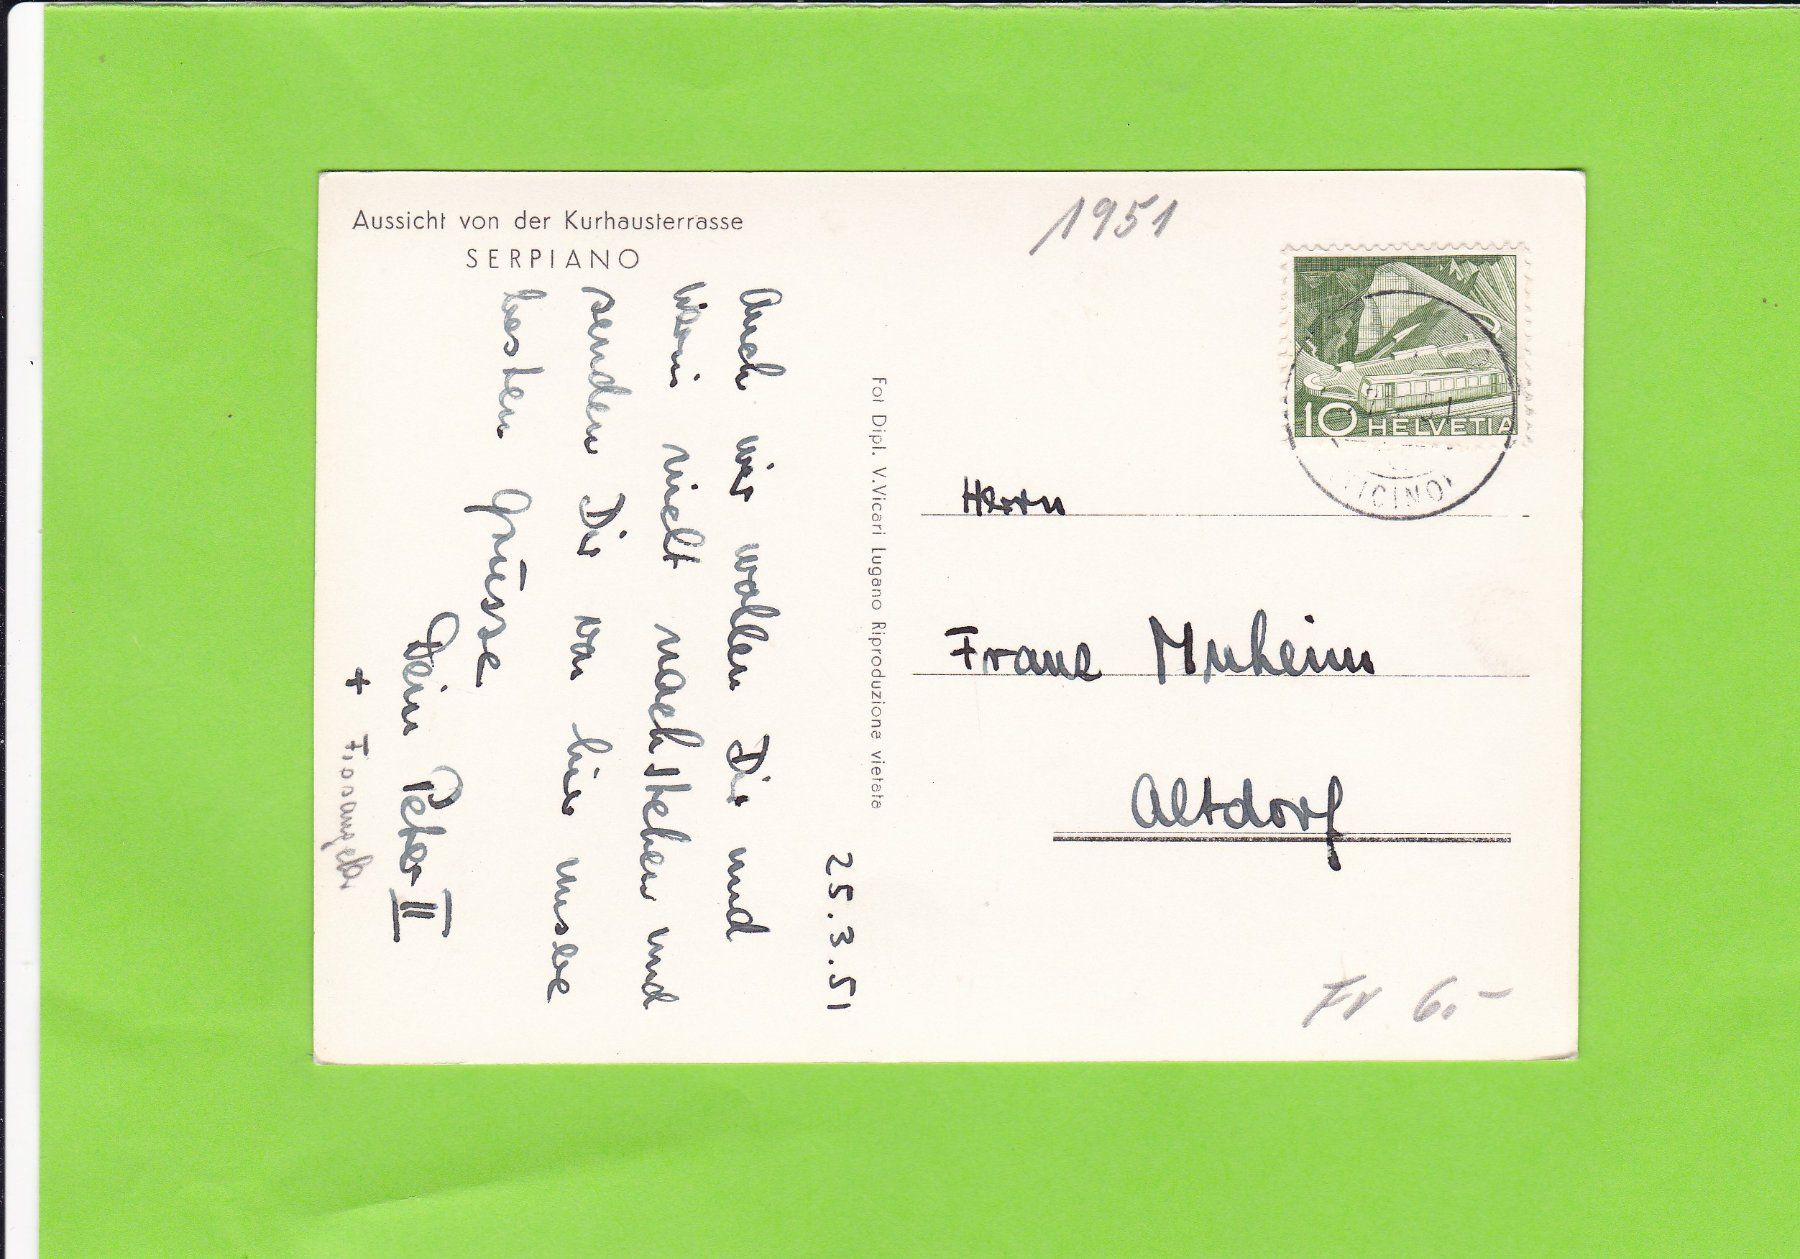 Aussicht von der Kurhausterrasse
SERPIANO
25.3.51
Auch wir wollen Dir und
nicht nachstehen und
senden Dir von hier unsere
besten Grüsse
Dein Peter II
+
Fot Dipl. V. Vicari Lugano Riproduzione vietata
1951
10 HELVETIA
(TICINO)
Herrn
Franz Muheim
Altdorf
Fr 6.-